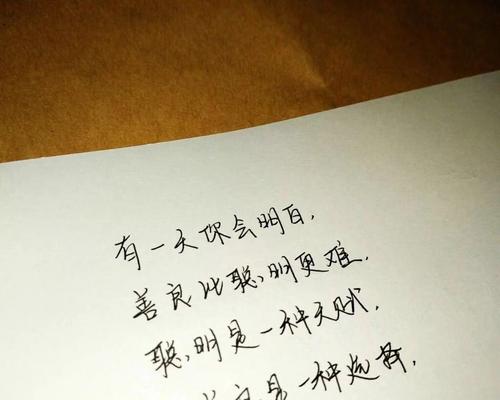 有一天你会明白，
善良比聪明更难．
聪明是一种天赋，
善良是一种选择．